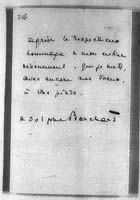 216
agréer le respectueux
hommage de mon entier
dévouement, que je mets
avec encore mes vœux,
à vos pieds.
Adolphe Borchard